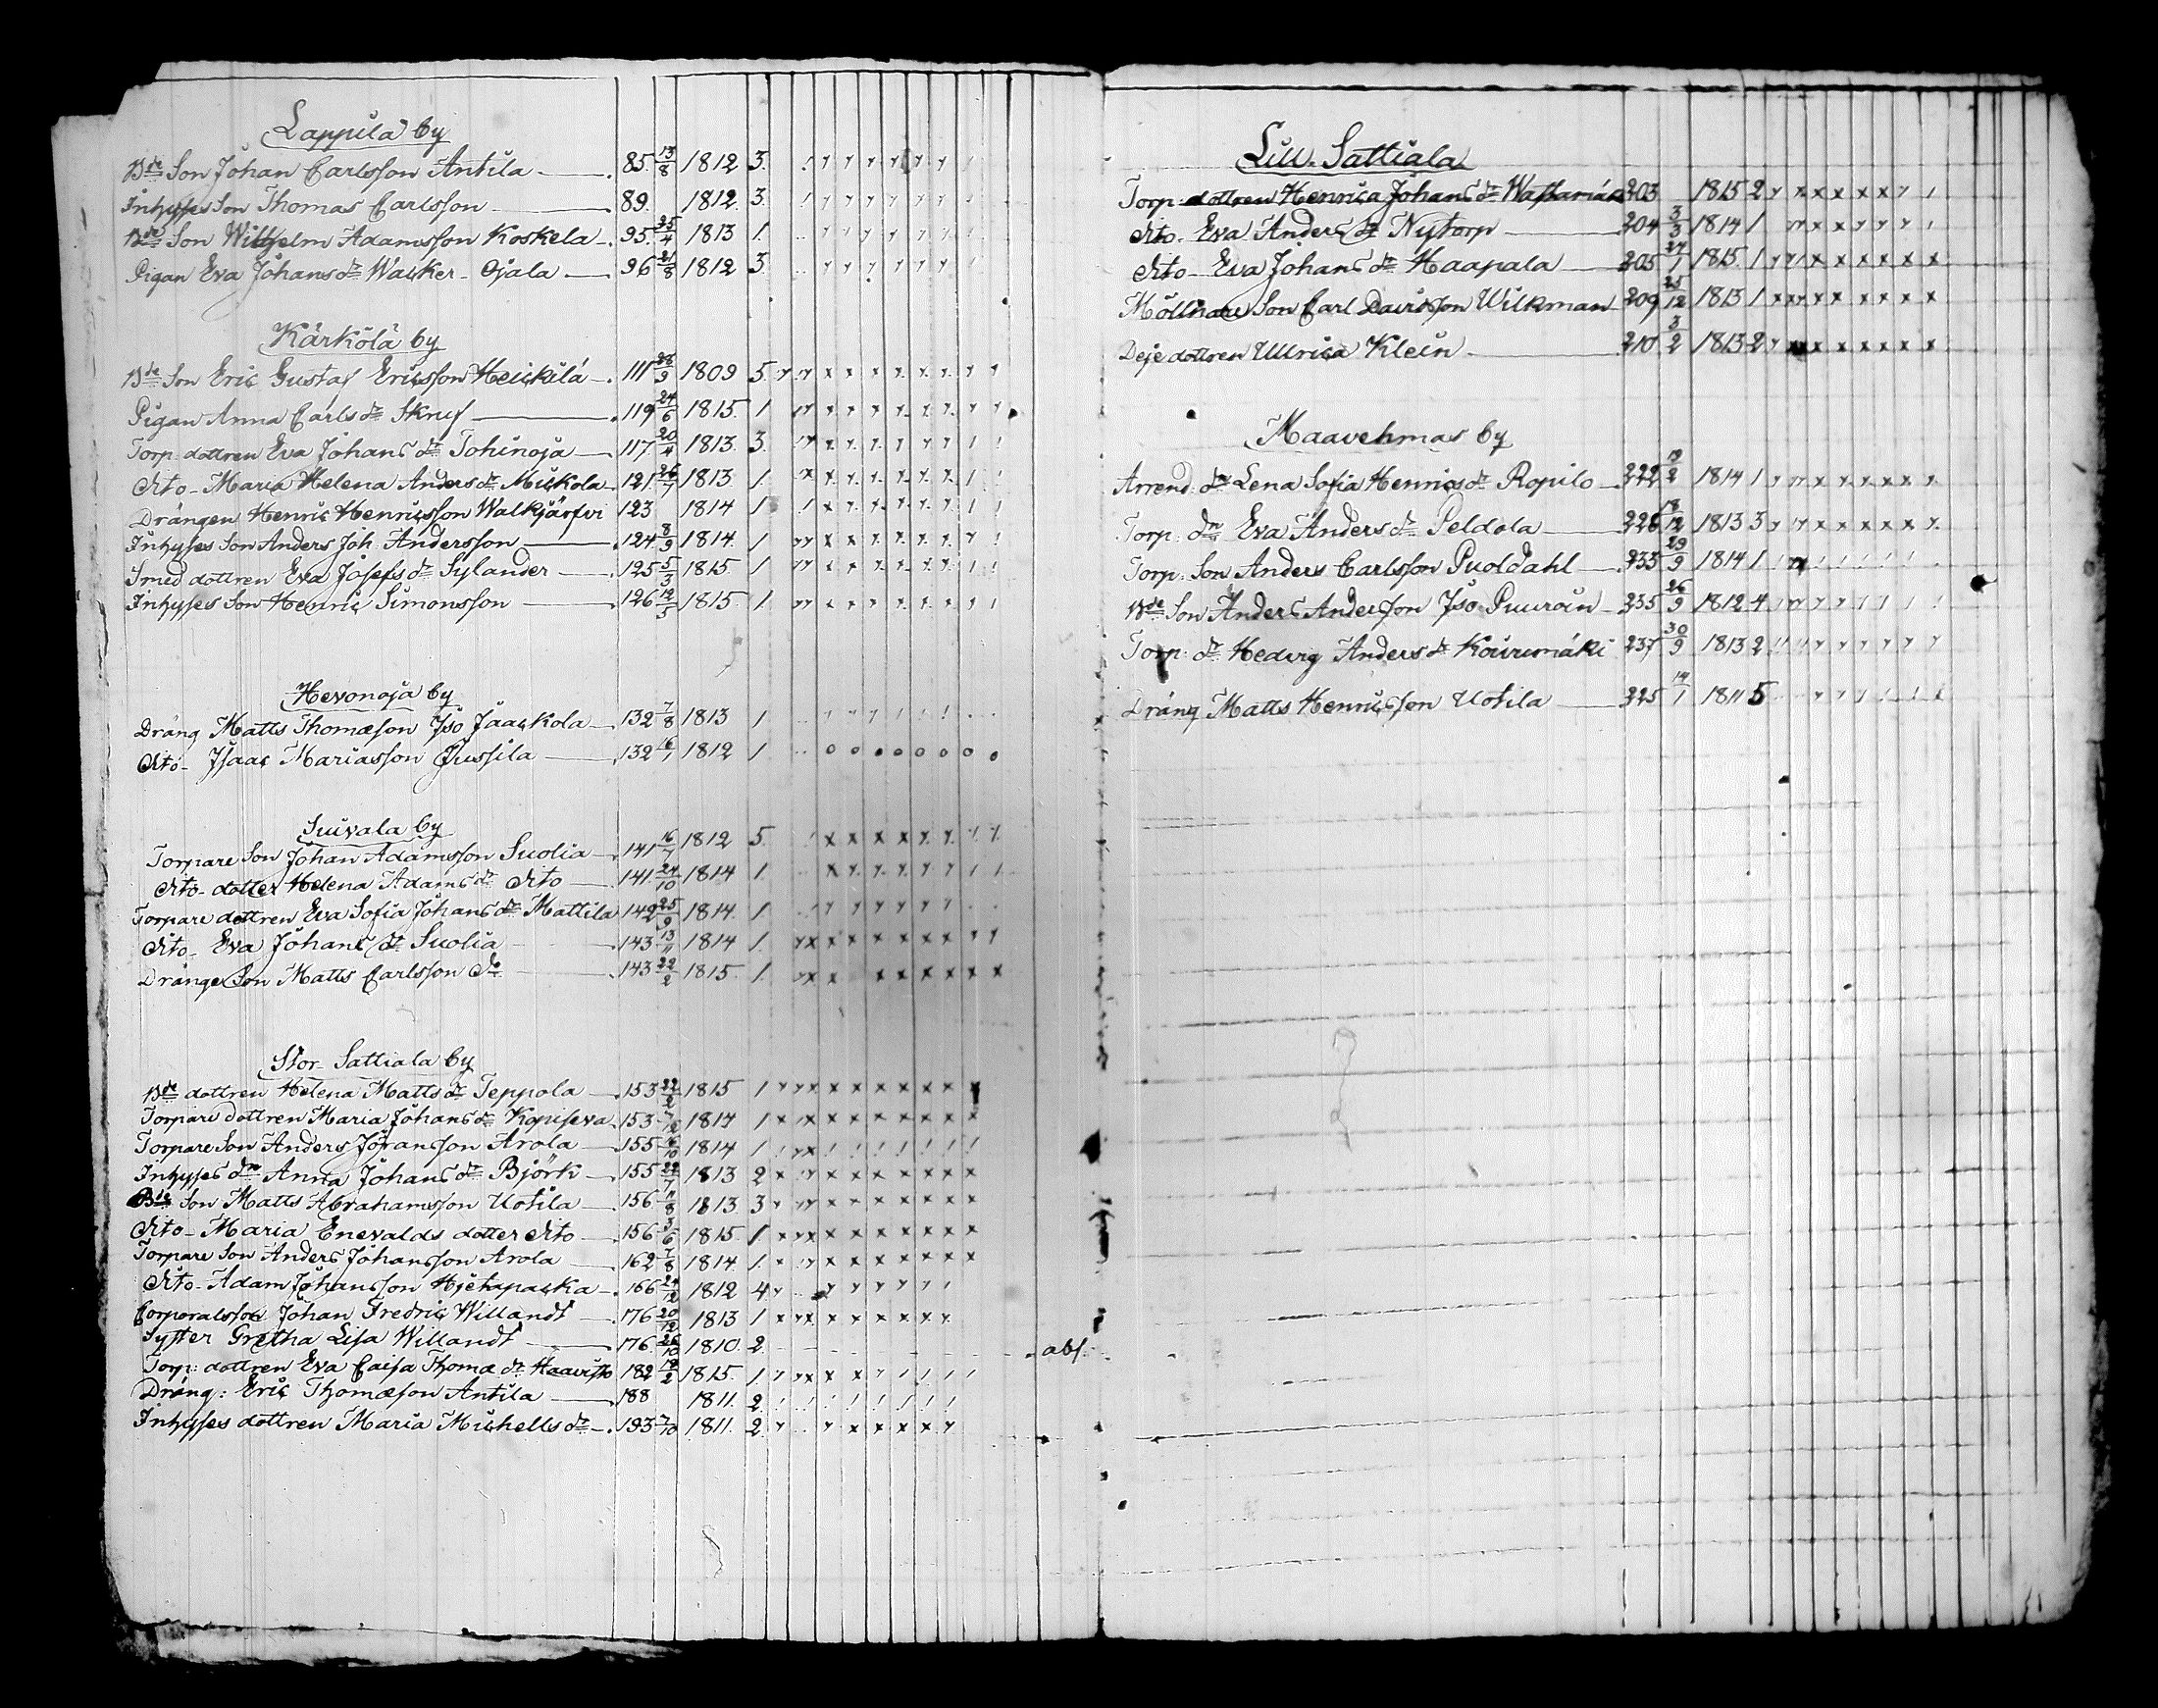 Lappila by
Bde Son Johan Carlsson Antila 85. 13/8 1812 3.
Inhyses Son Thomas Carlsson 89. 1812. 3.
Bde Son Wilhelm Adamsson Koskela 95. 25/4 1813 1.
Pigan Eva Johans dr Wacker-Ojala 96 21/8 1812 3.
Kärkölä by
Bde Son Eric Gustaf Ericsson Heickilä 111 28/9 1809 5.
Pigan Anna Carls dr Skruf 119 24/6 1815. 1
Torp. dottren Eva Johans dr Tohinoja 117. 20/4 1813. 3.
Dito - Maria Helena Anders dr Mickola 121 26/7 1813 1
Drängen Henric Henricsson Walkjärfvi 123 1814 1
Inhyses Son Anders Joh. Andersson 124. 8/9 1814. 1
Smed dottren Eva Josefs dr Sylander 125 5/3 1815 1
Inhyses Son Henric Simonsson 126 12/5 1815. 1
Hevonoja by
Dräng Matts Thomæson Iso Jaackola 132 7/8 1813 1
Dito - Isaac Mariasson Jussila 132 16/1 1812 1
Suivala by
Torpare Son Johan Adamsson Suolia 141 16/7 1812 5.
Dito - dotter Helena Adams dr Dito 141. 24/10 1814 1.
Torpare dottren Eva Sofia Johans dr Mattila 142 25/9 1814. 1
Dito - Eva Johans dr Suolia 143 13/11 1814 1.
Dränge Son Matts Carlsson do 143 22/2 1815. 1.
Stor-Sattiala by
Bde dottren Helena Matts dr Teppola 153 22/2 1815 1
Torpare dottren Maria Johans dr Kopiseva 153 1814 1
Torpare Son Anders Johansson Arola 155 16/10 1814 1
Inhyses dr Anna Johans dr Björk 155 22/7 1813 2
Bde Son Matts Abrahamsson Uotila 156 11/8 1813 3
Dito - Maria Enevalds dotter Dito 156 3/6 1815 1
Torpare Son Anders Johansson Arola 162 7/8 1814. 1
Dito - Adam Johansson Hjetapacka 166 24/12 1812 4
Corporalsson Johan Fredric Willandt 176 20/12 1813 1
Syster Gretha Lisa Willandt 176. 26/10 1810. 2. abs.
Torp: dottren Eva Caisa Thomæ dr Haavisto 182 12/2 1815. 1
Dräng: Eric Thomæson Antila 188 1811. 2.
Inhyses dottren Maria Michells dr 193 7/10 1811. 2.
Lill-Sattiala
Torp. dottren Henrica Johans dr 203 1815 2
Dito - Eva Anders dr Nytorp 204 3/3 1814 1
Dito - Eva Johans dr Haapala 205 27/1 1815. 1
Möllnare Son Carl Davidsson Wilkman 209 25/12 1813 1
Deje dottren Ullrica Klein 210 3/2 1813 2
Maavehmas by
Arrend. dr Lena Sofia Henrics dr Ropilo 222 19/2 1814 1
Torp: dr Eva Anders dr Peldola 226 18/12 1813 3
Torp: Son Anders Carlsson Puoldahl 233 29/9 1814 1
Bde Son Anders Andersson Iso Puuroin 235 26/9 1812 4
Torp: dr Hedvig Anders dr Kouvumäki 237 30/9 1813 2
Dräng Matts Henricsson Uotila 225 14/1 1811 5